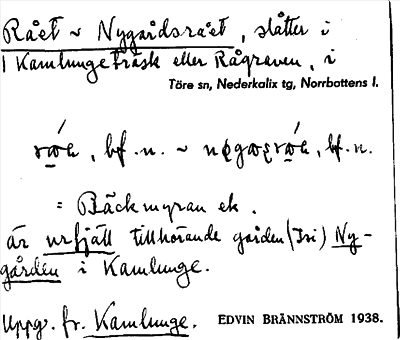 Rået ~ Nygårdsrået, slåtter i
Kamlungeträsk eller Rågraven, i
Töre sn, Nederkalix tg, Norrbottens l.
bf. n. ~ bf. n.
= Bäckmyran ek.
är urfjäll tillhörande gården (Isi) Ny-
gården i Kamlunge.
Uppg. fr. Kamlunge. EDVIN BRÄNNSTRÖM 1938.